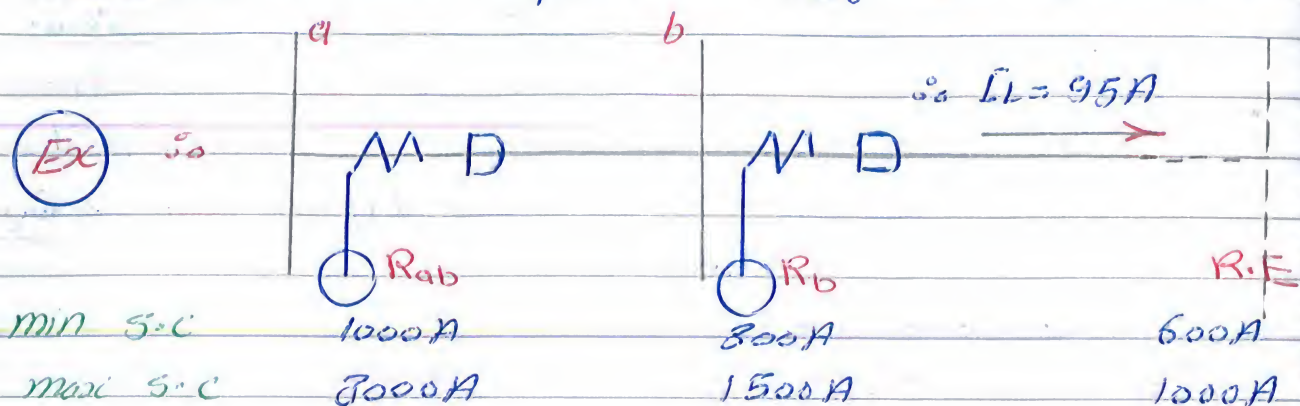 a b
∴ IL = 95A
Ex ∴
Rab Rb R.E
min S.C 1000A 800A 600A
maxi S.C 3000A 1500A 1000A